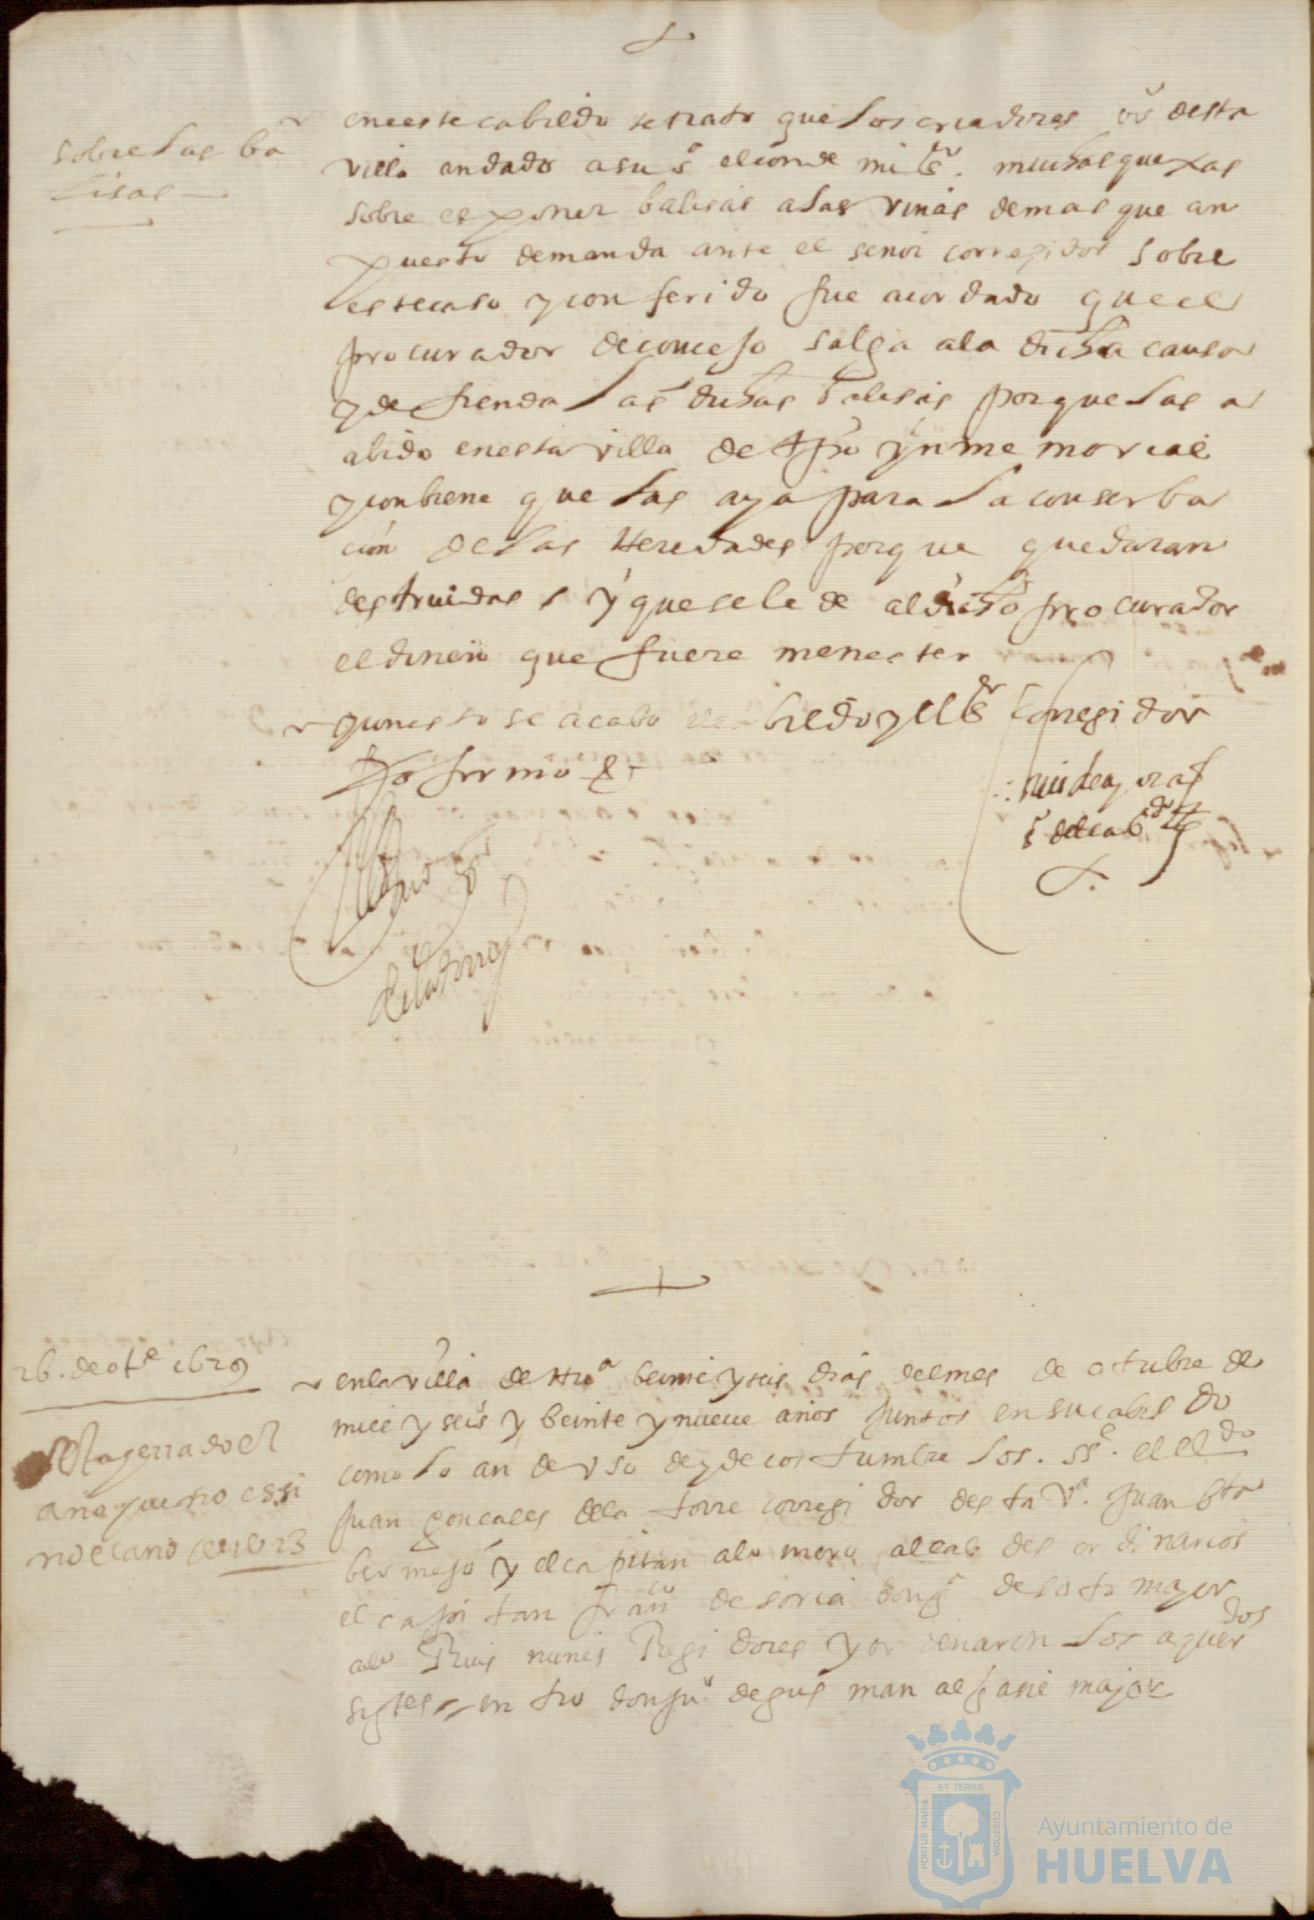 sobre las ba
lisas
en este cabildo se trato que los criadores vºs desta
villa an dado a su sª el conde mi sr. muchas quexas
sobre es poner balisas a las viñas demas que an
puesto demanda ante el señor corregidor sobre
este caso y conferido fue acordado que el
procurador de concejo salga a la dicha causa
y defienda las dichas balisas porque las a
abido en esta villa de tpo ynmemorial
y conbiene que las aya para la conserba
cion de las heredades porque quedaran
destruidas y que se le de al dicho procurador
el dinero que fuere menester
y en esto se acabo el cabildo y el sr corregidor
lo firmo
Ruis de
sº del cabdo
de la torre
26. de ote 1629
en la villa de Huª beinte y seis dias del mes de otubre de
mill y seis y beinte y nueve años juntos en su cabildo
como lo an de uso y de costumbre los. sses. el ldo
esta herrado el
año
no el año
juan gonçales de la torre corregidor desta vª. juan bta
bermejo y el capitan alº moro alcaldes ordinarios
el capitan franº de soria don gº de soto mayor
alº Ruis nunes Regidores y ordenaron los aquerdos
sigtes entro don juº de gusman alguasil major
PORTUS MARIS
ET TERRÆ
CUSTODIA
Ayuntamiento de
HUELVA